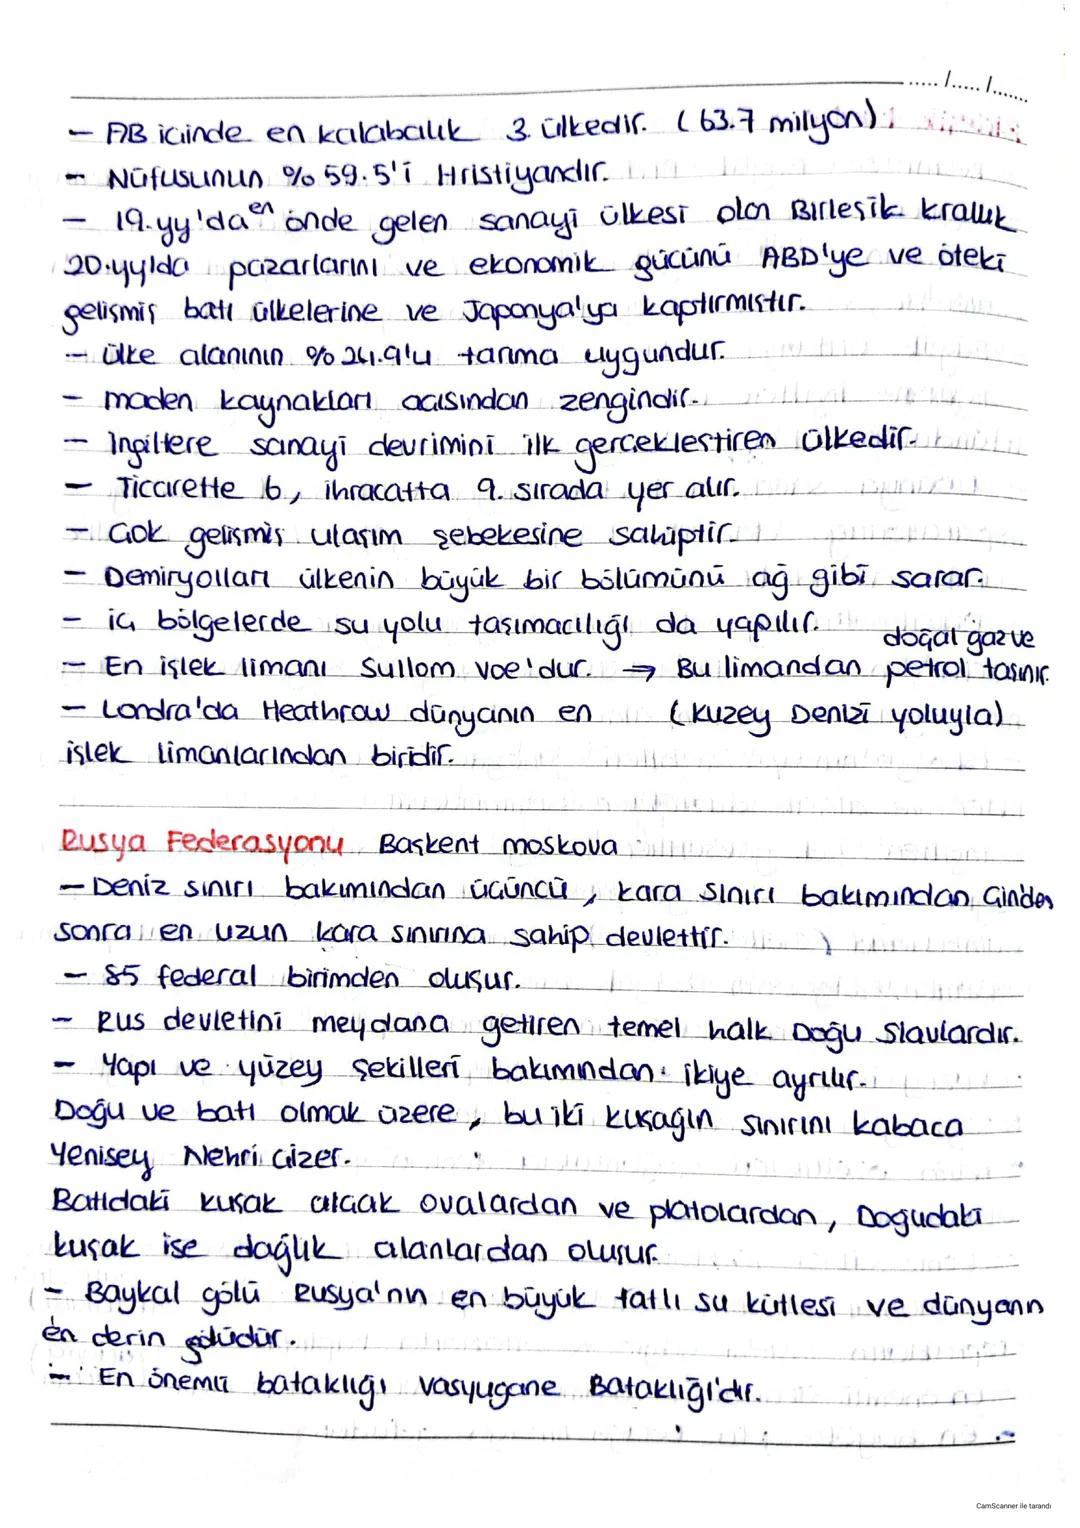 ...../...../.......
- AB içinde en kalabalık 3. ülkedir. (63.7 milyon)
- Nüfusunun %59.5'i Hristiyandır.
- 19.yy'da en önde gelen sanayi ülkesi olan Birleşik Krallık
20.yylda pazarlarını ve ekonomik gücünü ABD'ye ve öteki
gelişmiş batı ülkelerine ve Japonya'ya kaptırmıştır.
- ülke alanının %24.9'u tarıma uygundur.
- maden kaynakları açısından zengindir.
- İngiltere sanayi devrimini ilk gerçekleştiren ülkedir.
- Ticarette 6, ihracatta 9. sırada yer alır.
- Çok gelişmiş ulaşım şebekesine sahiptir.
- Demiryolları ülkenin büyük bir bölümünü ağ gibi sarar.
- iç bölgelerde su yolu taşımacılığı da yapılır.
- En işlek limanı Sullom voe'dur. → Bu limandan doğal gaz ve petrol taşınır.
- Londra'da Heathrow dünyanın en (Kuzey Denizi yoluyla)
işlek limanlarından biridir.
Rusya Federasyonu Başkent moskova
- Deniz sınırı bakımından üçüncü, kara sınırı bakımından Çin'den
sonra en uzun kara sınırına sahip devlettir.
- 85 federal birimden oluşur.
- Rus devletini meydana getiren temel halk Doğu Slavlardır.
- Yapı ve yüzey şekilleri bakımından ikiye ayrılır.
Doğu ve batı olmak üzere, bu iki kuşağın sınırını kabaca
Yenisey Nehri çizer.
Batıdaki kuşak alçak ovalardan ve platolardan, Doğudaki
kuşak ise dağlık alanlardan oluşur.
- Baykal gölü Rusya'nın en büyük tatlı su kütlesi ve dünyanın
en derin gölüdür.
- En önemli bataklığı vasyugane Bataklığı'dır.
CamScanner ile tarandı